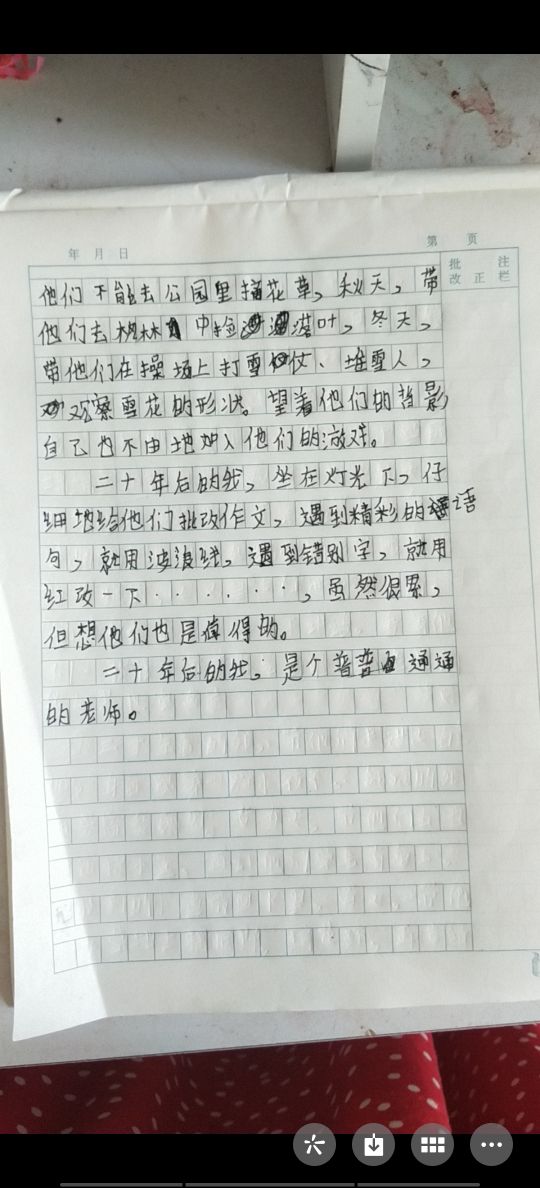 年 月 日
第 页
批 注
改 正 栏
他们不能去公园里摘花草，秋天，带
他们去树林中捡落叶，冬天，
带他们在操场上打雪仗、堆雪人，
观察雪花的形状。望着他们的背影
自己也不由地加入他们的游戏。
二十年后的我，坐在灯光下，仔
细地给他们批改作文，遇到精彩的语
句，就用波浪线，遇到错别字，就用
红改一下·······，虽然很累，
但想他们也是值得的。
二十年后的我，是个普普通通
的老师。